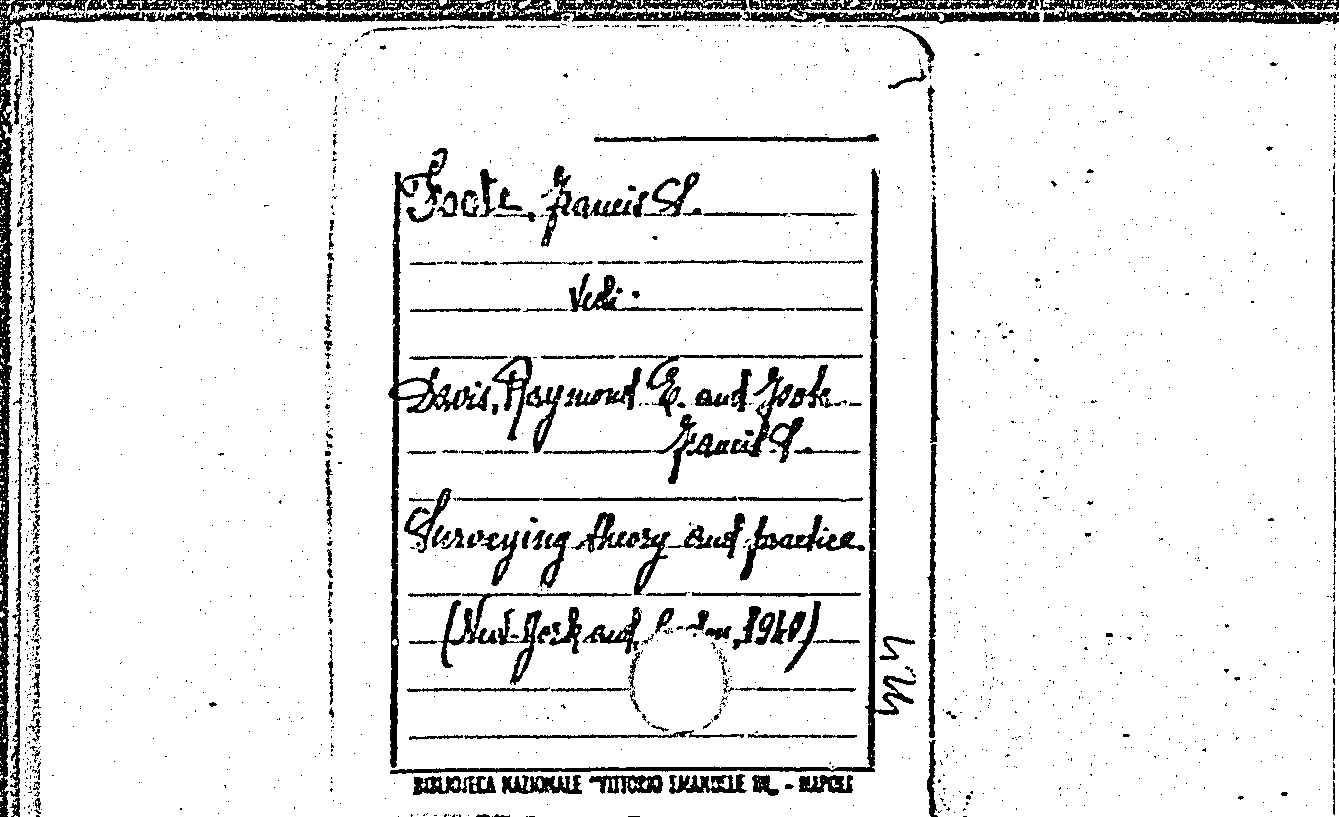 Foote, Francis S.
Vedi:
Davis, Raymond E. and Foote
Francis S.
Surveying theory and practice.
(New-York and London, 1940)
BIBLIOTECA NAZIONALE "VITTORIO EMANUELE III„ - NAPOLI